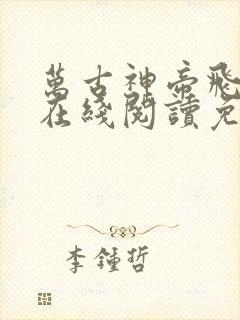 萬古神帝飛
在綫閱讀免
李鍾哲